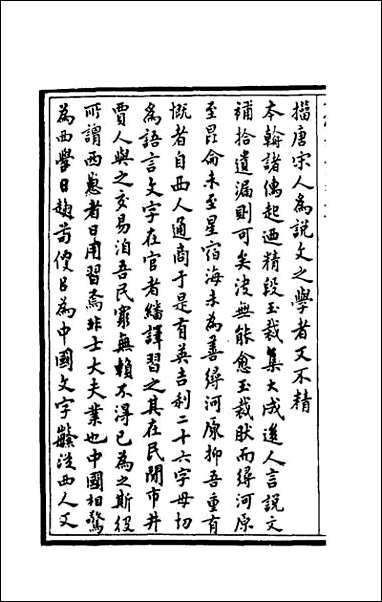 唐宋人為說文之學者又不精
本朝諸儁起迺精段玉裁集大成後人言說文
補拾遺漏則可矣決無能愈玉裁肰而尋河原
至昆侖未至星宿海未為善尋河原抑吾重有
慨者自西人通商于是有英吉利二十六字母切
為語言文字在官者繙譯習之其在民間市井
賈人與之交易洎吾民窮無賴不得已為之斯役
所謂西崽者日用習焉非士大夫業也中國相驚
為西學日趨苟便曰為中國文字緐從西人文